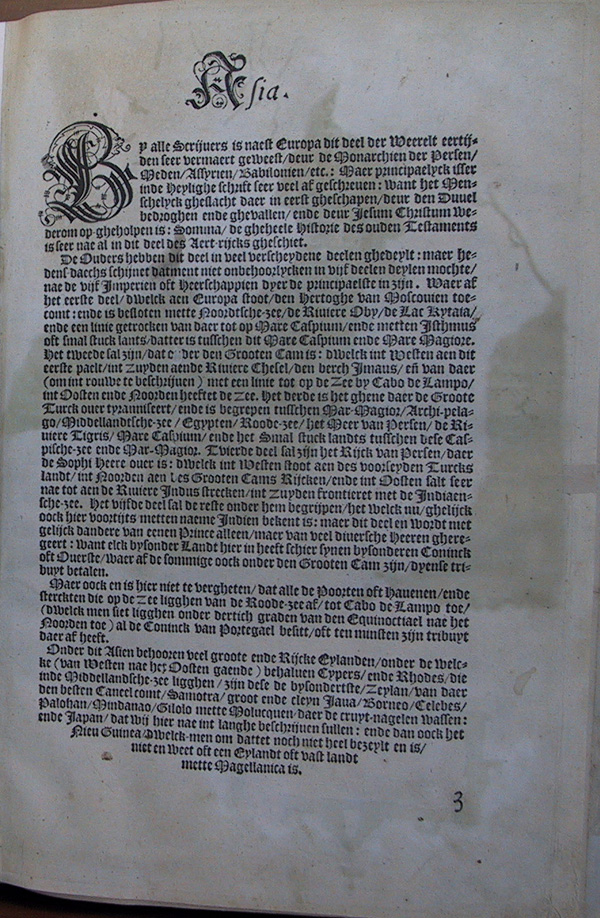 Asia.
By alle Scrijuers is naest Europa dit deel der Weerelt eertij-
den seer vermaert geweest/deur de Monarchien der Persen/
Meden/Assyrien/Babilonien/etc.: Maer principaelyck isser
inde Heylighe schrift seer veel af geschreuen: want het Men-
schelyck gheslacht daer in eerst gheschapen/deur den Duuel
bedroghen ende ghevallen/ ende deur Jesum Christum we-
derom op-gheholpen is: Somma/ de gheheele Historie des ouden Testaments
is seer nae al in dit deel des Aert-rijcks gheschiet.
De Ouders hebben dit deel in veel verscheydene deelen ghedeylt: maer he-
dens daechs schijnet datment niet onbehoorlycken in vijf deelen deylen mochte/
nae de vijf Imperien oft Heerschappien dyer de principaelste in zijn. Waer af
het eerste deel/dwelck aen Europa stoot/den Hertoghe van Moscouien toe-
comt: ende is besloten mette Noordtsche-zee/de Riuiere Oby/de Lac Kytaia/
ende een linie getrocken van daer tot op Mare Caspium/ende metten Isthmus
oft smal stuck lants/datter is tusschen dit Mare Caspium ende Mare Magiore.
Het tweede sal zijn/dat der den Grooten Cam is: dwelck int Westen aen dit
eerste paelt/int Zuyden aende Riuiere Chesel/den berch Imaus/ en̄ van daer
(om int rouwe te beschrijuen) met een linie tot op de Zee by Cabo de Lampo/
int Oosten ende Noorden heeftet de Zee. Het derde is het ghene daer de Groote
Turck ouer tyranniseert/ ende is begrepen tusschen Mar-Magior/Archi-pela-
go/Middellandtsche-zee/Egypten/Roode-zee/het Meer van Persen/de Ri-
uiere Tigris/Mare Caspium/ende het Smal stuck landts tusschen dese Cas-
pische-zee ende Mar-Magior. Tvierde deel sal zijn het Rijck van Persen/daer
de Sophi Heere ouer is: dwelck int Westen stoot aen des voorseyden Turcks
landt/int Noorden aen des Grooten Cams Rijcken/ende int Oosten salt seer
nae tot aen de Riuiere Indus strecken/int Zuyden frontieret met de Indiaen-
sche-zee. Het vijfde deel sal de reste onder hem begrijpen/het welck nu/ghelijck
oock hier voortijts metten naeme Indien bekent is: maer dit deel en wordt niet
gelijck dandere van eenen Prince alleen/maer van veel diuersche Heeren ghere-
geert: want elck bysonder Landt hier in heeft schier synen bysonderen Coninck
oft Ouerste/waer af de sommige oock onder den Grooten Cam zijn/dyense tri-
buyt betalen.
Maer oock en is hier niet te vergheten/dat alle de Poorten oft Hauenen/ende
sterckten die op de Zee ligghen van de Roode-zee af/tot Cabo de Lampo toe/
(dwelck men siet ligghen onder dertich graden van den Equinoctiael nae het
Noorden toe) al de Coninck van Portegael besitt/oft ten minsten zijn tribuyt
daer af heeft.
Onder dit Asien behooren veel groote ende Rijcke Eylanden/onder de welc-
ke (van Westen nae het Oosten gaende) behaluen Cypers/ende Rhodes/die
inde Middellandtsche-zee ligghen/ zijn dese de bysondertste/Zeylan/van daer
den besten Caneel comt/Samotra/groot ende cleyn Jaua/Borneo/Celebes/
Palohan/Mindanao/Gilolo mette Molucquen daer de cruyt-nagelen wassen:
ende Japan/dat wij hier nae int langhe beschrijuen sullen: ende dan oock het
Nieu Guinea/Dwelck-men om dattet noch niet heel bezeylt en is/
niet en weet oft een Eylandt oft vast landt
mette Magellanica is.
3